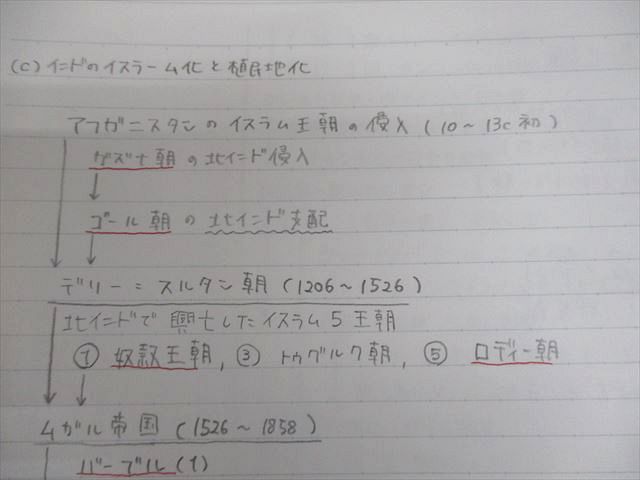 (C) インドのイスラーム化と植民地化
アフガニスタンのイスラム王朝の侵入 (10～13c初)
ガズナ朝の北インド侵入
ゴール朝の北インド支配
デリー=スルタン朝 (1206～1526)
北インドで興亡したイスラム5王朝
① 奴隷王朝, ③ トゥグルク朝, ⑤ ロディー朝
ムガル帝国 (1526～1858)
バーブル(1)